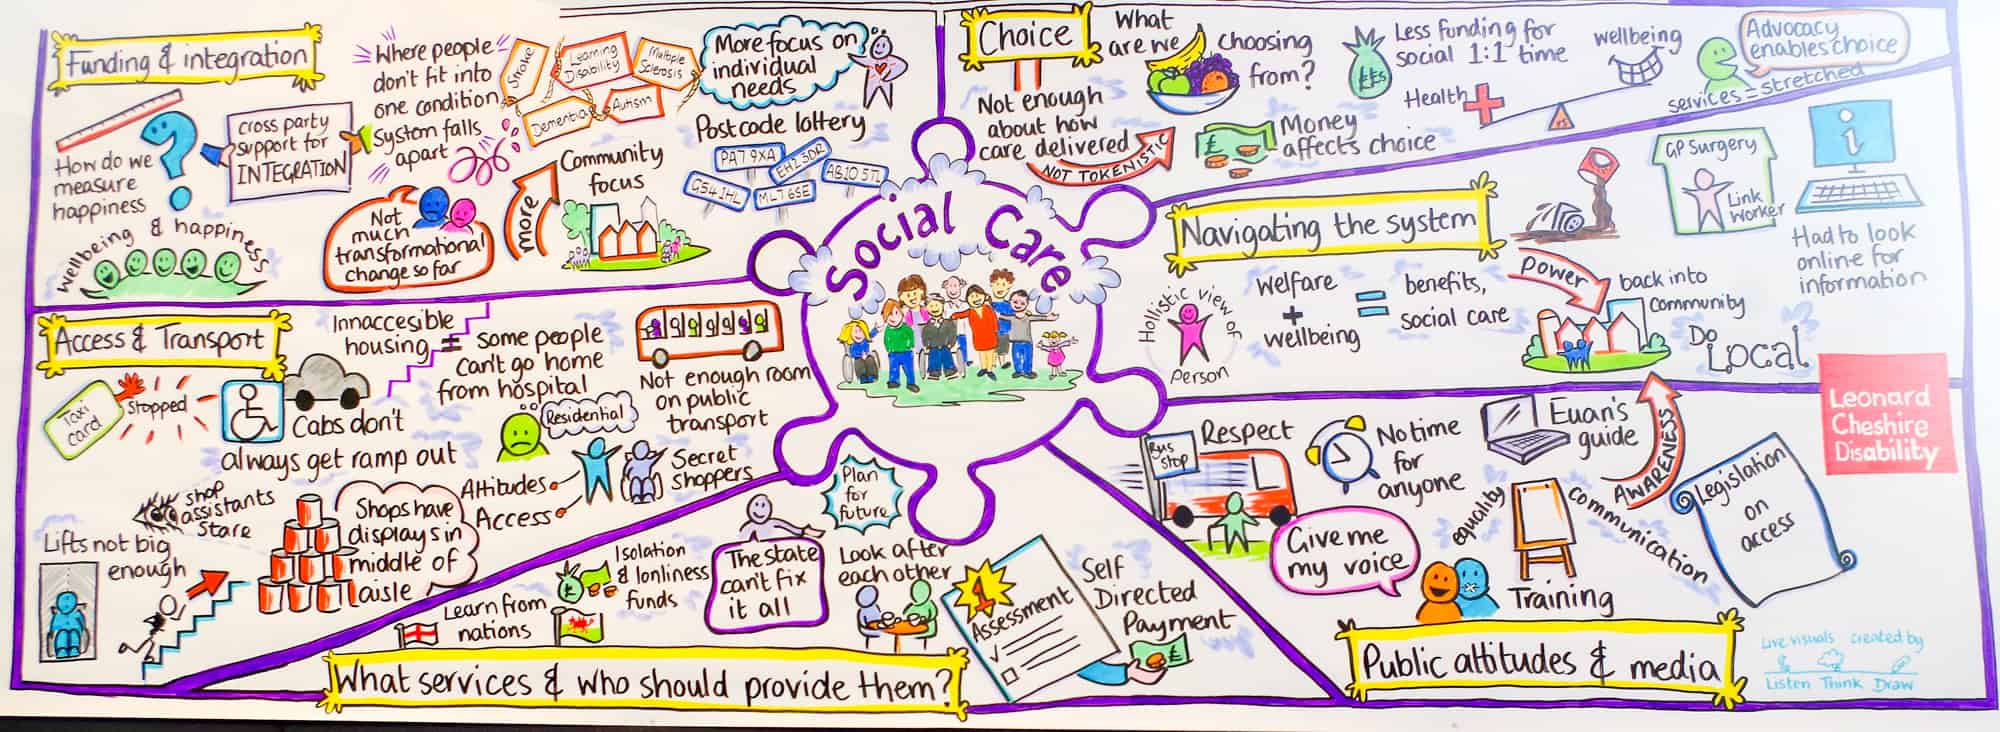 Social Care
Funding & integration
How do we
measure
happiness
wellbeing & happiness
cross party
support for
INTEGRATION
Where people
don't fit into
one condition
System falls
apart
Smoke
Learning
Disability
Multiple
Sclerosis
Dementia
Autism
More focus on
individual
needs
Postcode lottery
PA7 9XA
EH2 3DR
AB10 5TL
G54 1HL
ML7 6SE
Not
much
transformational
change so far
more
Community
focus
Choice
What
are we
choosing
from?
Not enough
about how
care delivered
NOT TOKENISTIC
Less funding for
social 1:1 time
££s
Money
affects choice
£
wellbeing
Health
vs
Advocacy
enables choice
services = stretched
Navigating the system
Hollistic view of
person
welfare
+
wellbeing
=
benefits,
social care
Power
back into
community
GP Surgery
Link
Worker
i
Had to look
online for
information
Do Local
Leonard
Cheshire
Disability
Access & Transport
Taxi
card
Stopped
Innaccesible
housing =
some people
can't go home
from hospital
Cabs don't
always get ramp out
Residential
Not enough room
on public
transport
Attitudes
Access
Secret
Shoppers
shop
assistants
stare
Lifts not big
enough
Shops have
displays in
middle of
aisle
What services & who should provide them?
Learn from
nations
Isolation
& lonliness
funds
The state
can't fix
it all
Plan
for
future
Look after
each other
1
Assessment
Self
Directed
Payment
£
Public attitudes & media
Bus
Stop
Respect
Give me
my voice
No time
for
anyone
Euan's
guide
AWARENESS
equality
communication
Training
Legislation
on
access
Live visuals created by
Listen Think Draw